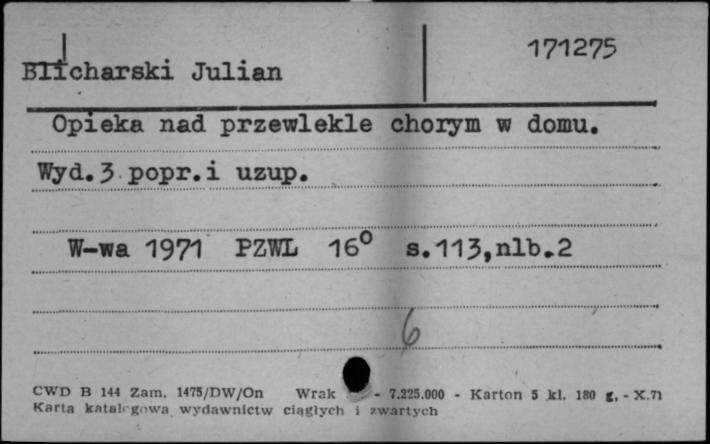 171275
Blicharski Julian
Opieka nad przewlekle chorym w domu.
Wyd.3 popr.i uzup.
W-wa 1971 PZWL 16° s.113,nlb.2
6
CWD B 144 Zam. 1475/DW/On Wrak - 7.225.000 - Karton 5 kl. 180 g, - X.71
Karta katalogowa wydawnictw ciągłych i zwartych